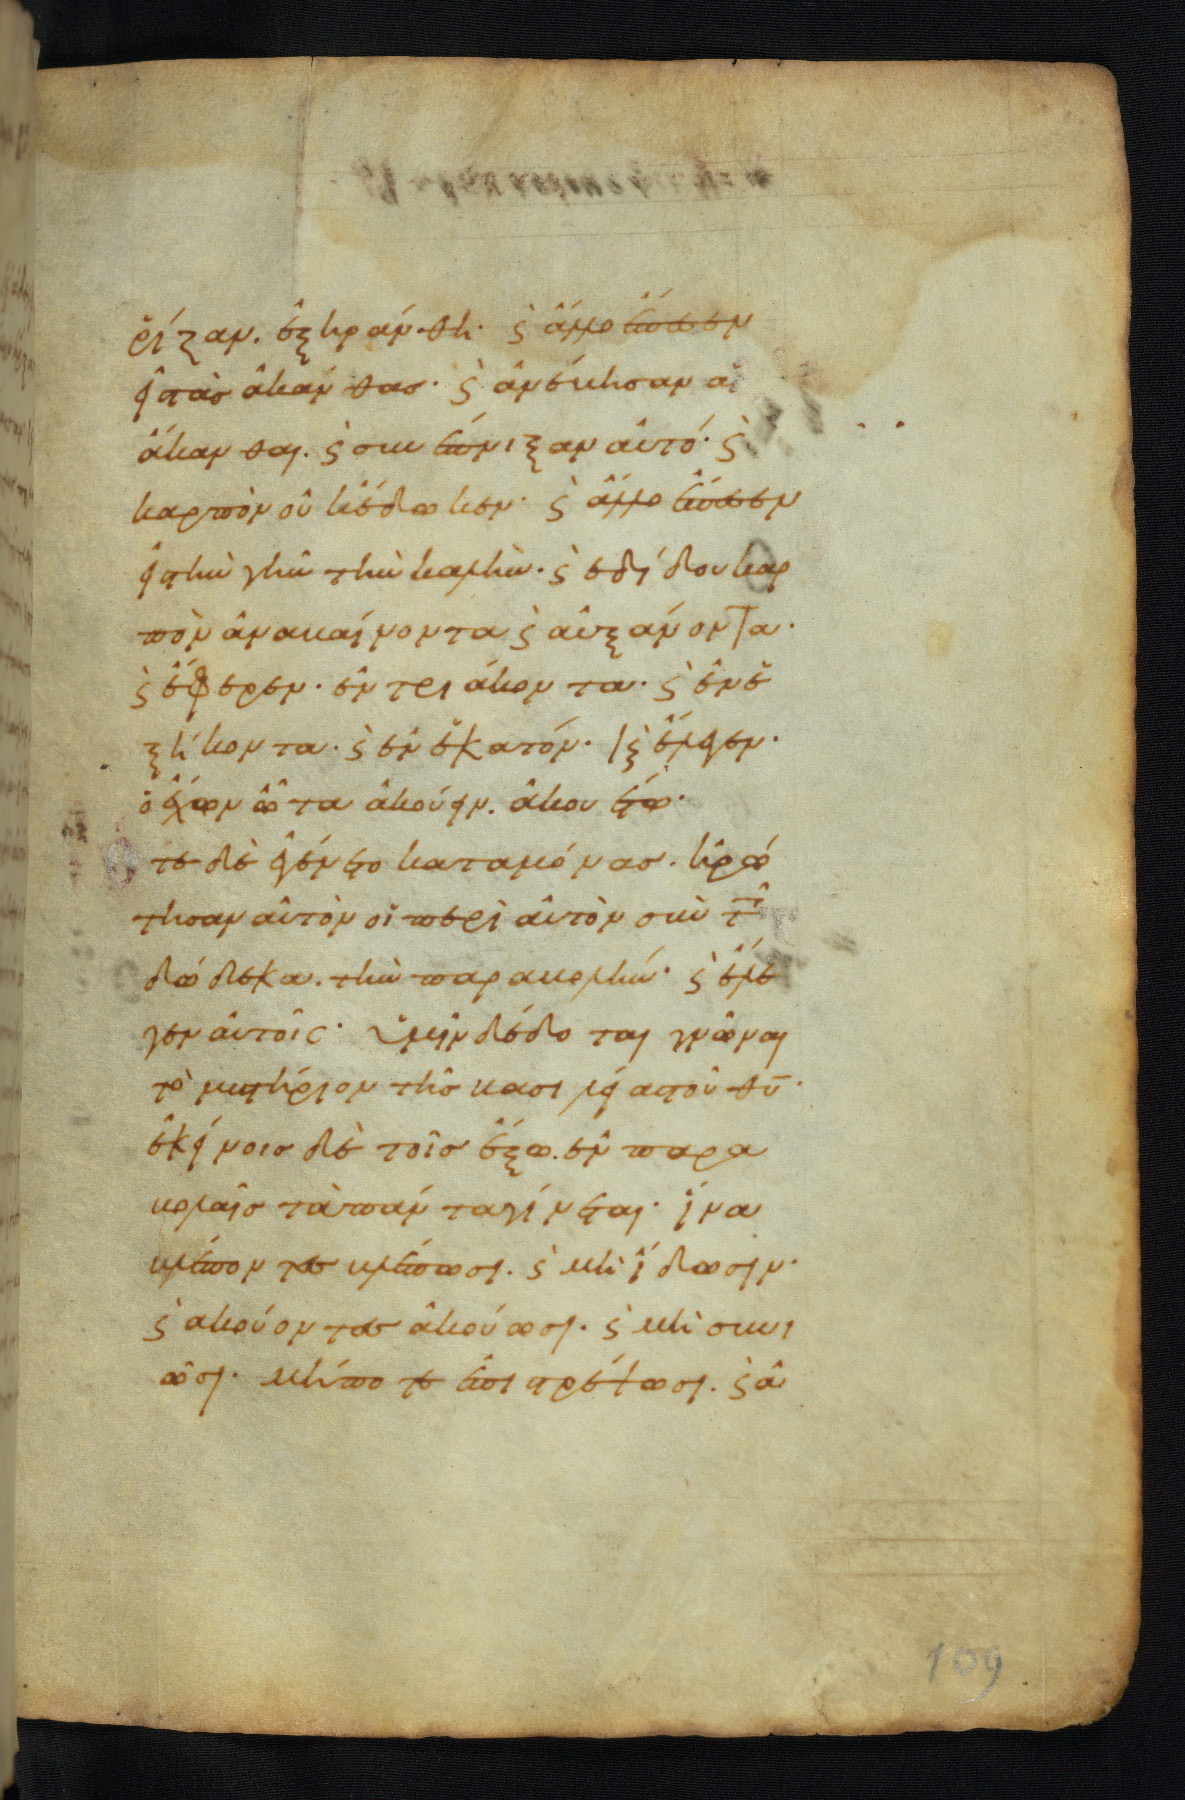 ῥίζαν. ἐξηράνθη. ϛ ἄλλο ἔπεσεν
εἰς τὰς ἀκάνθας. ϛ ἀνέβησαν αἱ
ἄκανθαι. ϛ συνέπνιξαν αὐτό. ϛ
καρπὸν οὐκ ἔδωκεν. ϛ ἄλλο ἔπεσεν
εἰς τὴν γῆν τὴν καλὴν. ϛ εδίδου καρ
πὸν ἀναβαίνοντα ϛ αὐξάνοντα.
ϛ ἔφερεν. ἐν τριάκοντα. ϛ ἐν ἑ
ξήκοντα. ϛ ἐν ἑκατόν. ϛ ἔλεγεν.
ὁ ἔχων ὦτα ἀκούειν. ἀκουέτω.
τε δὲ ἐγένετο καταμόνας. ἠρώ
τησαν αὐτὸν οἱ περὶ αὐτὸν σὺν τ
δώδεκα. τὴν παραβολήν. ϛ ἔλε
γεν αὐτοῖς. ὑμῖν δέδοται γνῶναι
τὸ μυστήριον τῆς βασιλείας τοῦ θῦ.
ἐκείνοις δὲ τοῖς ἔξω. ἐν παρα
βολαῖς τὰ πάντα γίνεται. ἵνα
βλέποντες βλέπωσι. ϛ μὴ ἴδωσιν.
ϛ ακούοντες ἀκούωσι. ϛ μὴ συνι
ῶσι. μήποτε ἐπιστρέψωσι. ϛ ἀ
109